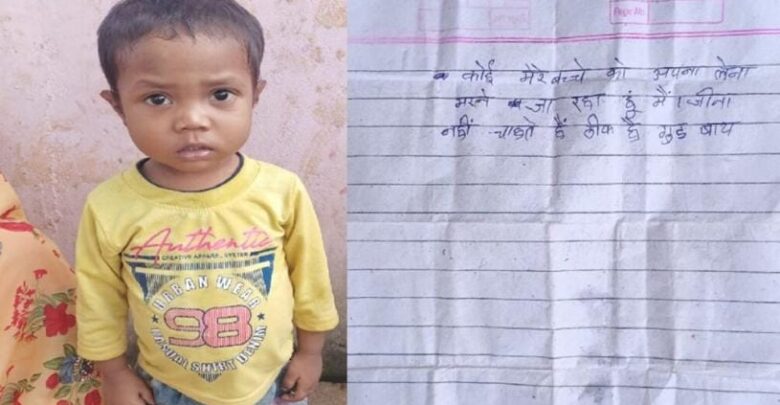 Page No.
Authentic
CREATIVE APPAREL SYSTEM
URBAN WEAR
98
कोई मेरे बच्चे को अपना लेना
मरने जा रहा हूं मैं। जीना
नहीं चाहते हैं ठीक है गुड बाय